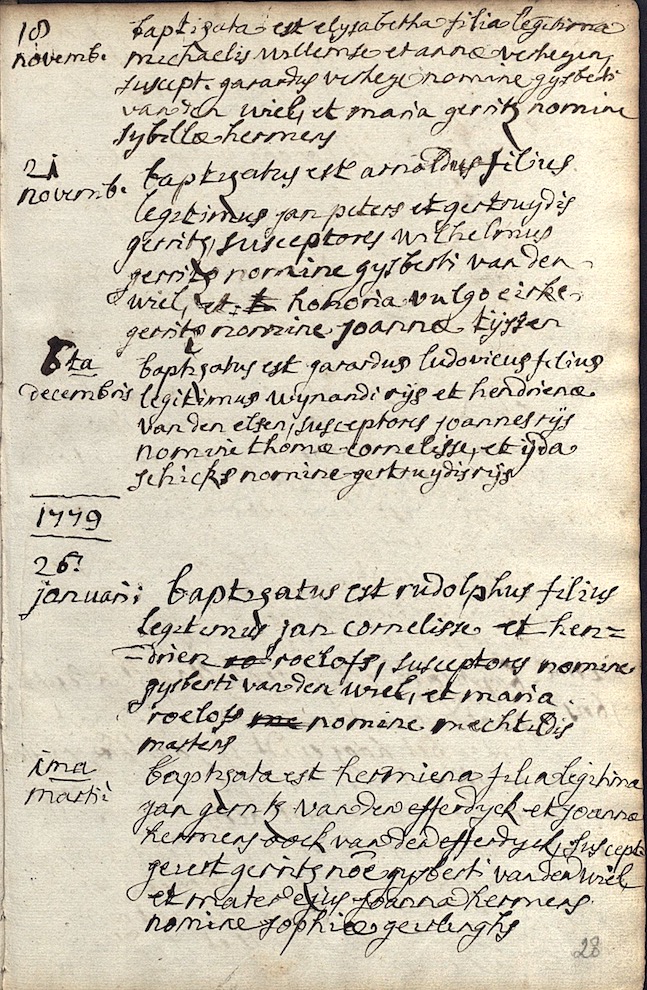 18 baptizata est elysabetha filia legitima
novemb. michaelis willemse et annæ verheyen,
suscept. garardus verheye nomine gysberti
van den wiel, et maria gerritz nomine
sybillæ hermens
21 baptizatus est arnoldus filius
novemb. legitimus jan peters et gertruydis
gerritz, susceptores wilhelmus
gerritz nomine gysberti van den
wiel, et honoria vulgo eirke
gerritz nomine joannæ tijssen
6ta baptizatus est garardus ludovicus filius
decembris legitimus wynandi rijs et hendrienæ
van den elsen, susceptores joannes rijs
nomine thomæ cornelisse, et ijda
schicks nomine gertruydis rijs
1779
26.
januarii baptizatus est rudolphus filius
legitimus jan cornelisse et hen=
=drien roelofs, susceptores nomine
gysberti van den wiel, et maria
roelofs nomine mechtildis
martens
ima baptizata est hermiena filia legitima
martii jan gerritz van den efferdyck et joannæ
hermens oock van den efferdyck, suscept.
gerrit gerritz noe gysberti van den wiel
et mater ejus joanna hermens
nomine sophiæ geurlinghs
28